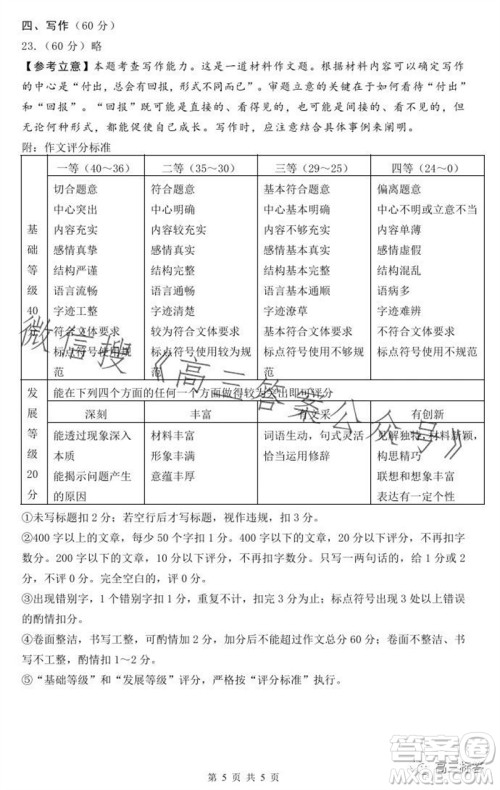 四、写作（60 分）
23.（60 分）略
【参考立意】本题考查写作能力。这是一道材料作文题。根据材料内容可知，写作
的中心是“付出，总会有回报，形式不同而已”。审题立意的关键在于如何看待“付出”
和“回报”。“回报”既可能是直接的、看得见的，也可能是间接的、看不见的，但
无论何种形式，都有助于自己成长。写作时，应注意结合具体事例来阐明。
附：作文评分标准
一等（40～36） 二等（35～30） 三等（29～25） 四等（24～0）
基础等级40分
切合题意 符合题意 基本符合题意 偏离题意
中心突出 中心明确 中心基本明确 中心不明或立意不当
内容充实 内容较充实 内容不够充实 内容单薄
感情真挚 感情真实 感情基本真实 感情虚假
结构严谨 结构完整 结构基本完整 结构混乱
语言流畅 语言通畅 语言基本通畅 语病多
字迹工整 字迹清楚 字迹潦草 字迹难辨
符合文体要求 较为符合文体要求 基本符合文体要求 不符合文体要求
标点符号使用规范 标点符号使用较为规范 标点符号使用不够规范 标点符号使用不规范
发展等级20分
能在下列四个方面的任何一个方面做得较为突出即可评分
深刻 丰富 有文采 有创新
能透过现象深入本质 材料丰富 词语生动，句式灵活 见解独特，材料新颖，
能揭示问题产生的原因 形象丰满 恰当运用修辞 构思精巧
意蕴丰厚 联想和想象丰富
表达有一定个性
①未写标题扣 2 分；若空行后才写标题，视作违规，扣 3 分。
②400 字以上的文章，每少 50 个字，扣 1 分。400 字以下的文章，不再扣字
数分。200 字以下的文章，20 分以下评分，不再扣字数分。只写一两句话的，给
1 分，不评 0 分。完全空白的，评 0 分。
③出现错别字，1 个扣 1 分，重复不计，扣完 3 分为止；标点符号出现 3 处以上错误
的酌情扣分。
④卷面整洁，书写工整，可酌情加 2 分（加分后不能超过作文总分 60 分）；卷面不整洁，书
写不工整，酌情扣 1～2 分。
⑤“基础等级”和“发展等级”评分，严格按“评分标准”执行。
第 5 页 共 5 页
微信搜《高三答案公众号》
答案圈
MXQE.COM
高三标答